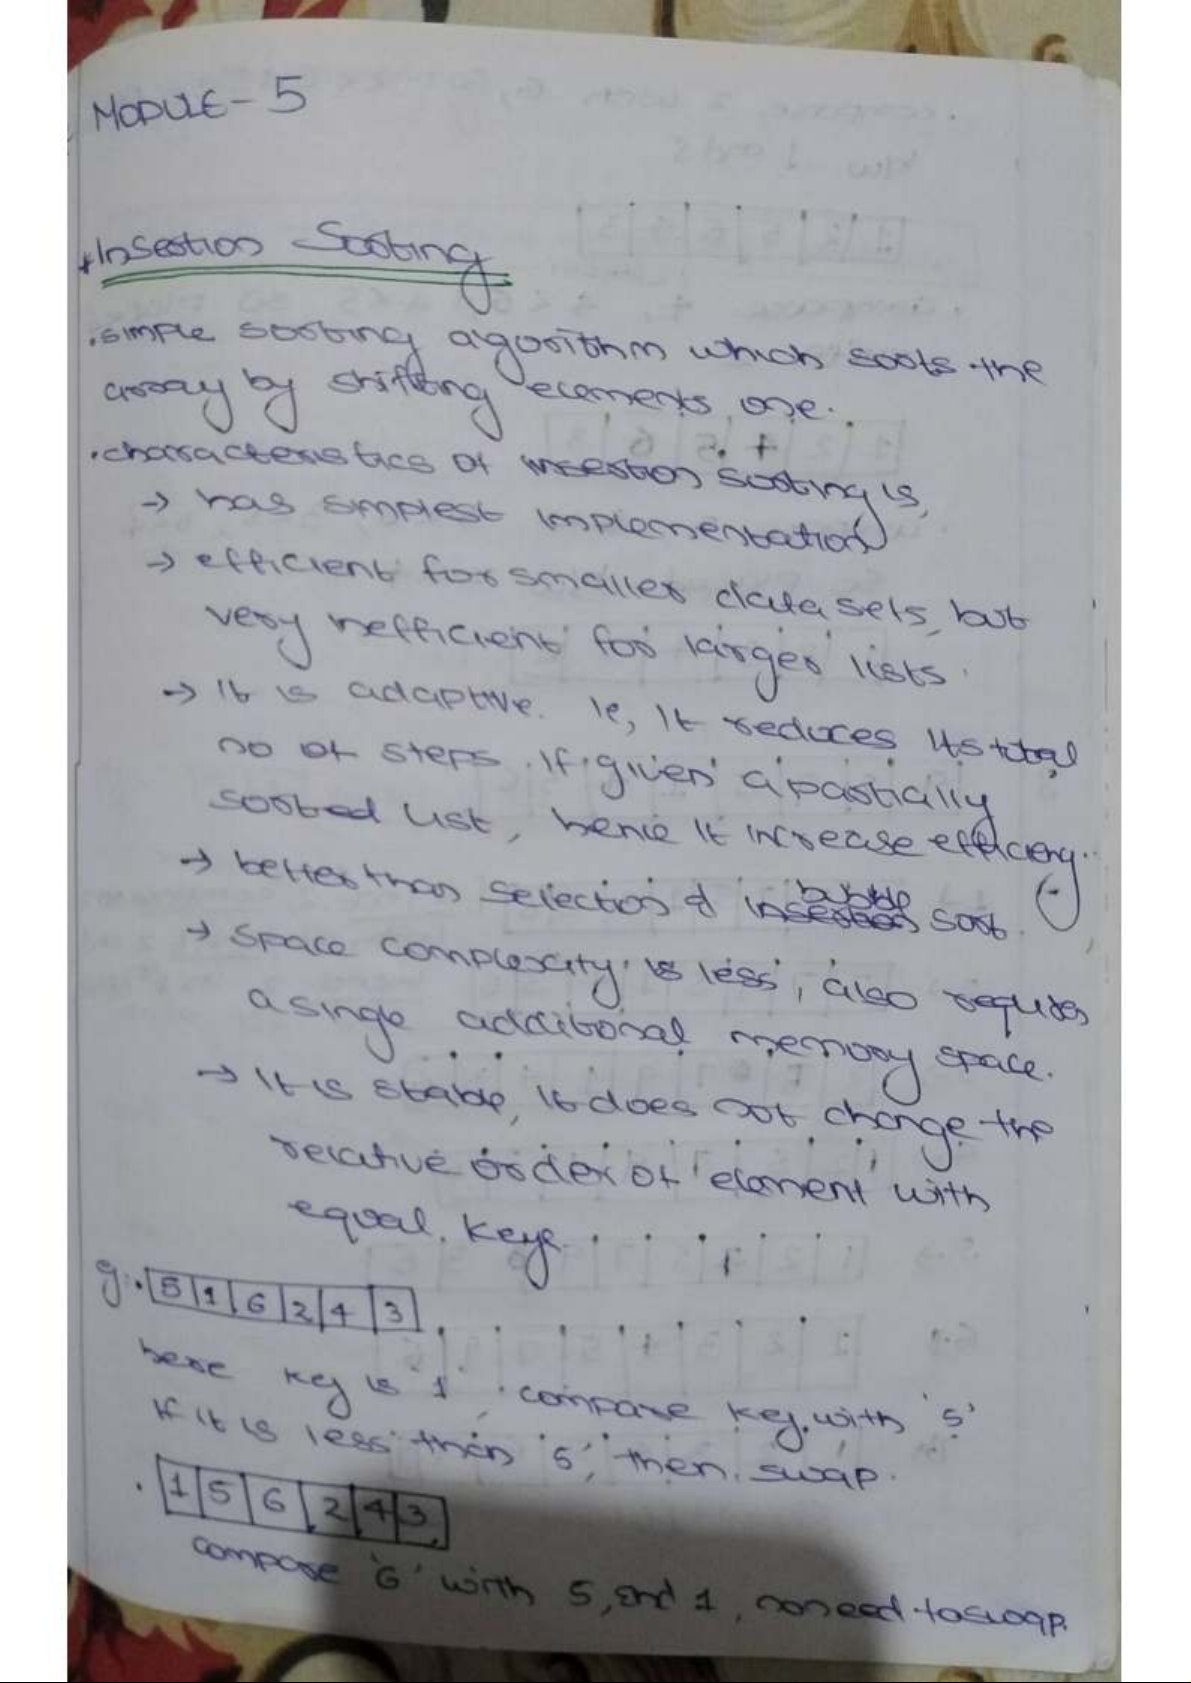 MODULE - 5
* Insertion Sorting
. simple sorting algorithm which sorts the
array by shifting elements one.
. characteristics of insertion sorting is,
→ has simplest implementation
→ efficient for smaller data sets, but
very inefficient for larger lists.
→ It is adaptive. ie, it reduces its total
no of steps if given a partially
sorted list, hence it increase efficiency.
→ better than selection & bubble sort.
→ space complexity is less, also requires
a single additional memory space.
→ It is stable, it does not change the
relative order of element with
equal keys.
g: . 5 1 6 2 4 3
here key is 1, compare key with '5'
If it is less than '5', then swap.
. 1 5 6 2 4 3
compare '6' with 5, and 1, no need to swap.